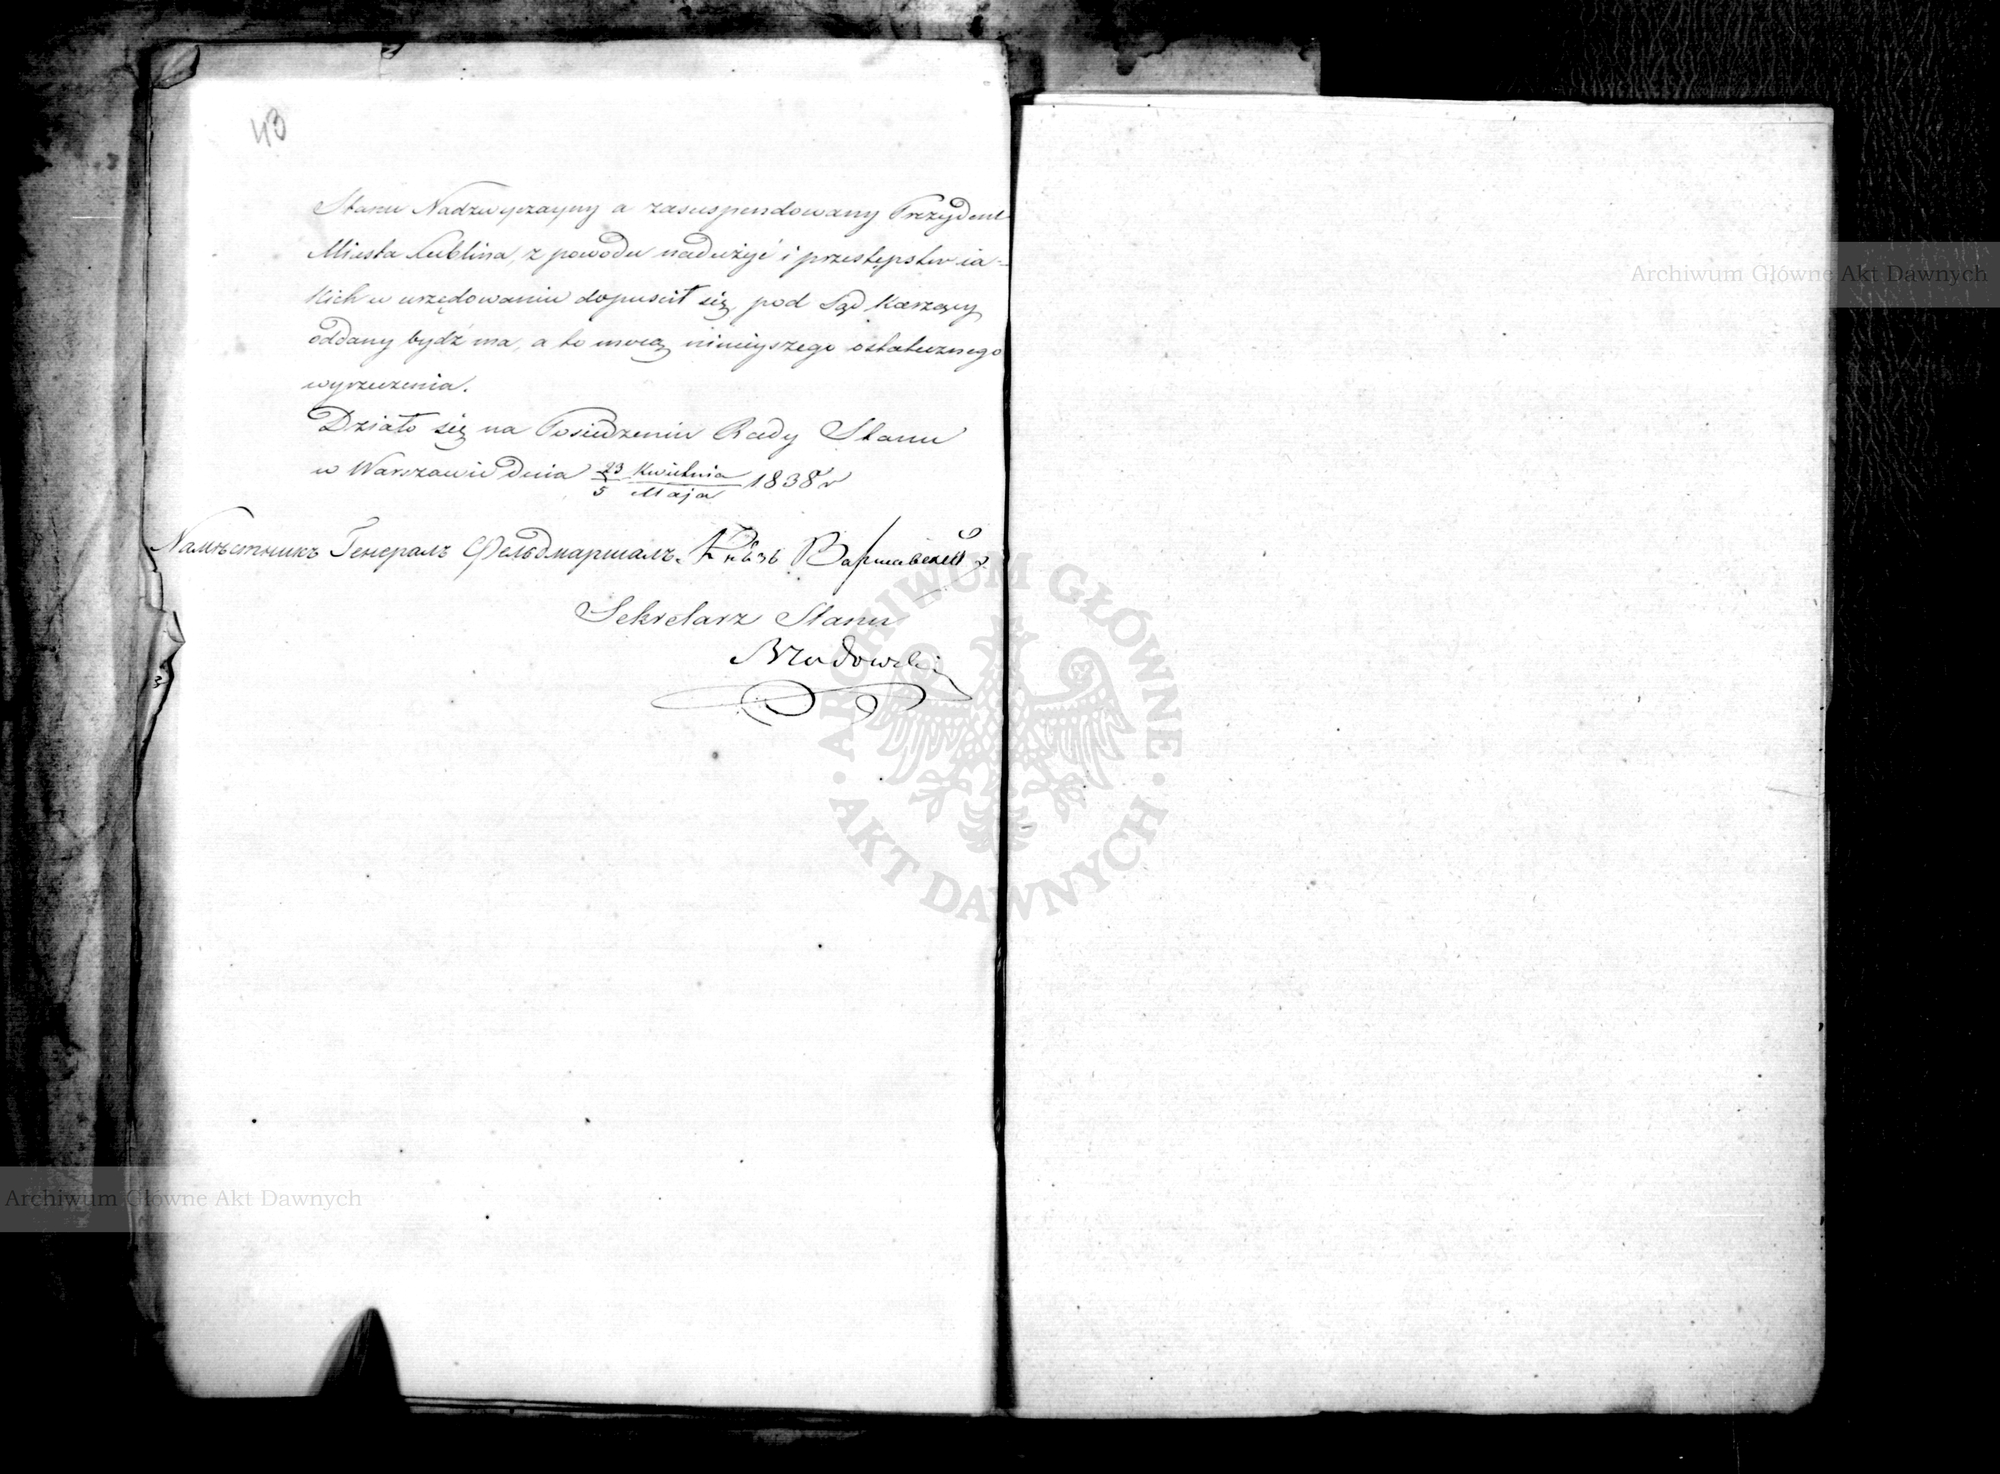 43
Stanu Nadzwyczayny a zasuspendowany Prezydent
Miasta Lublina, z powodu nadużyć i przestępstw ia-
kich w urzędowaniu dopuscił się, pod Sąd Karzący
oddany bydź ma, a to mocą ninieyszego ostatecznego
wyrzeczenia.
Działo się na Posiedzeniu Rady Stanu
w Warszawie dnia 23 Kwietnia / 5 Maja 1838 r
Намѣстникъ Генералъ Фельдмаршалъ, Князь Варшавскій
Sekretarz Stanu
Archiwum Główne Akt Dawnych
ARCHIWUM GŁÓWNE
AKT DAWNYCH
Archiwum Główne Akt Dawnych